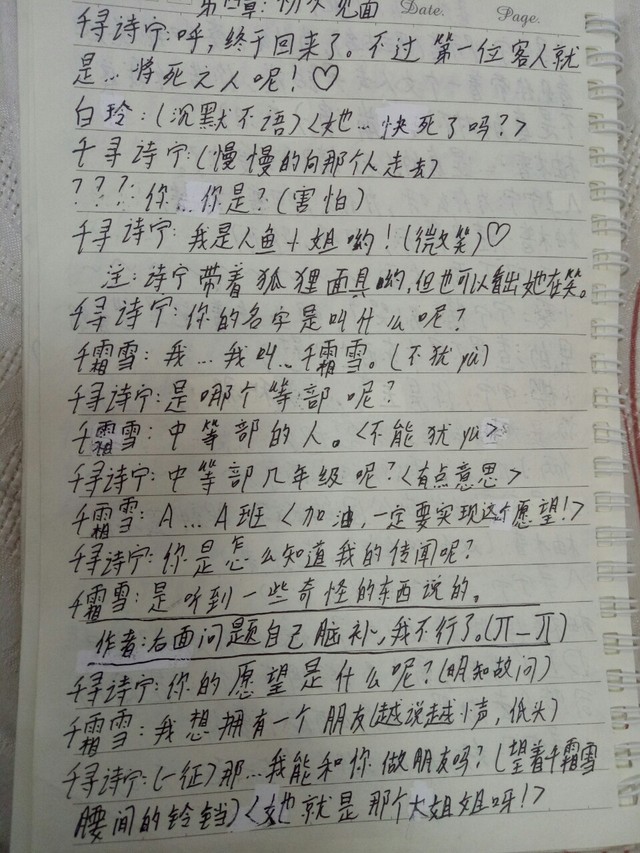 第四章：初次见面 Date. Page.
千寻诗宁：呼，终于回来了。不过第一位客人就
是…将死之人呢！♡
白玲：(沉默不语)<她…快死了吗？>
千寻诗宁：(慢慢的向那个人走去)
？？？：你…你是？(害怕)
千寻诗宁：我是人鱼小姐哟！(微笑)♡
注：诗宁带着狐狸面具哟，但也可以看出她在笑。
千寻诗宁：你的名字是叫什么呢？
千霜雪：我…我叫…千霜雪。(不犹yù)
千寻诗宁：是哪个等部呢？
千霜雪：中等部的人。<不能犹yù>
千寻诗宁：中等部几年级呢？<有点意思>
千霜雪：A…A班<加油，一定要实现这个愿望！>
千寻诗宁：你是怎么知道我的传闻呢？
千霜雪：是听到一些奇怪的东西说的。
作者：右面问题自己脑补，我不行了。(π—π)
千寻诗宁：你的愿望是什么呢？(明知故问)
千霜雪：我想拥有一个朋友(越说越小声，低头)
千寻诗宁：(一征)那…我能和你做朋友吗？(望着千霜雪
腰间的铃铛)<她就是那个大姐姐呀！>